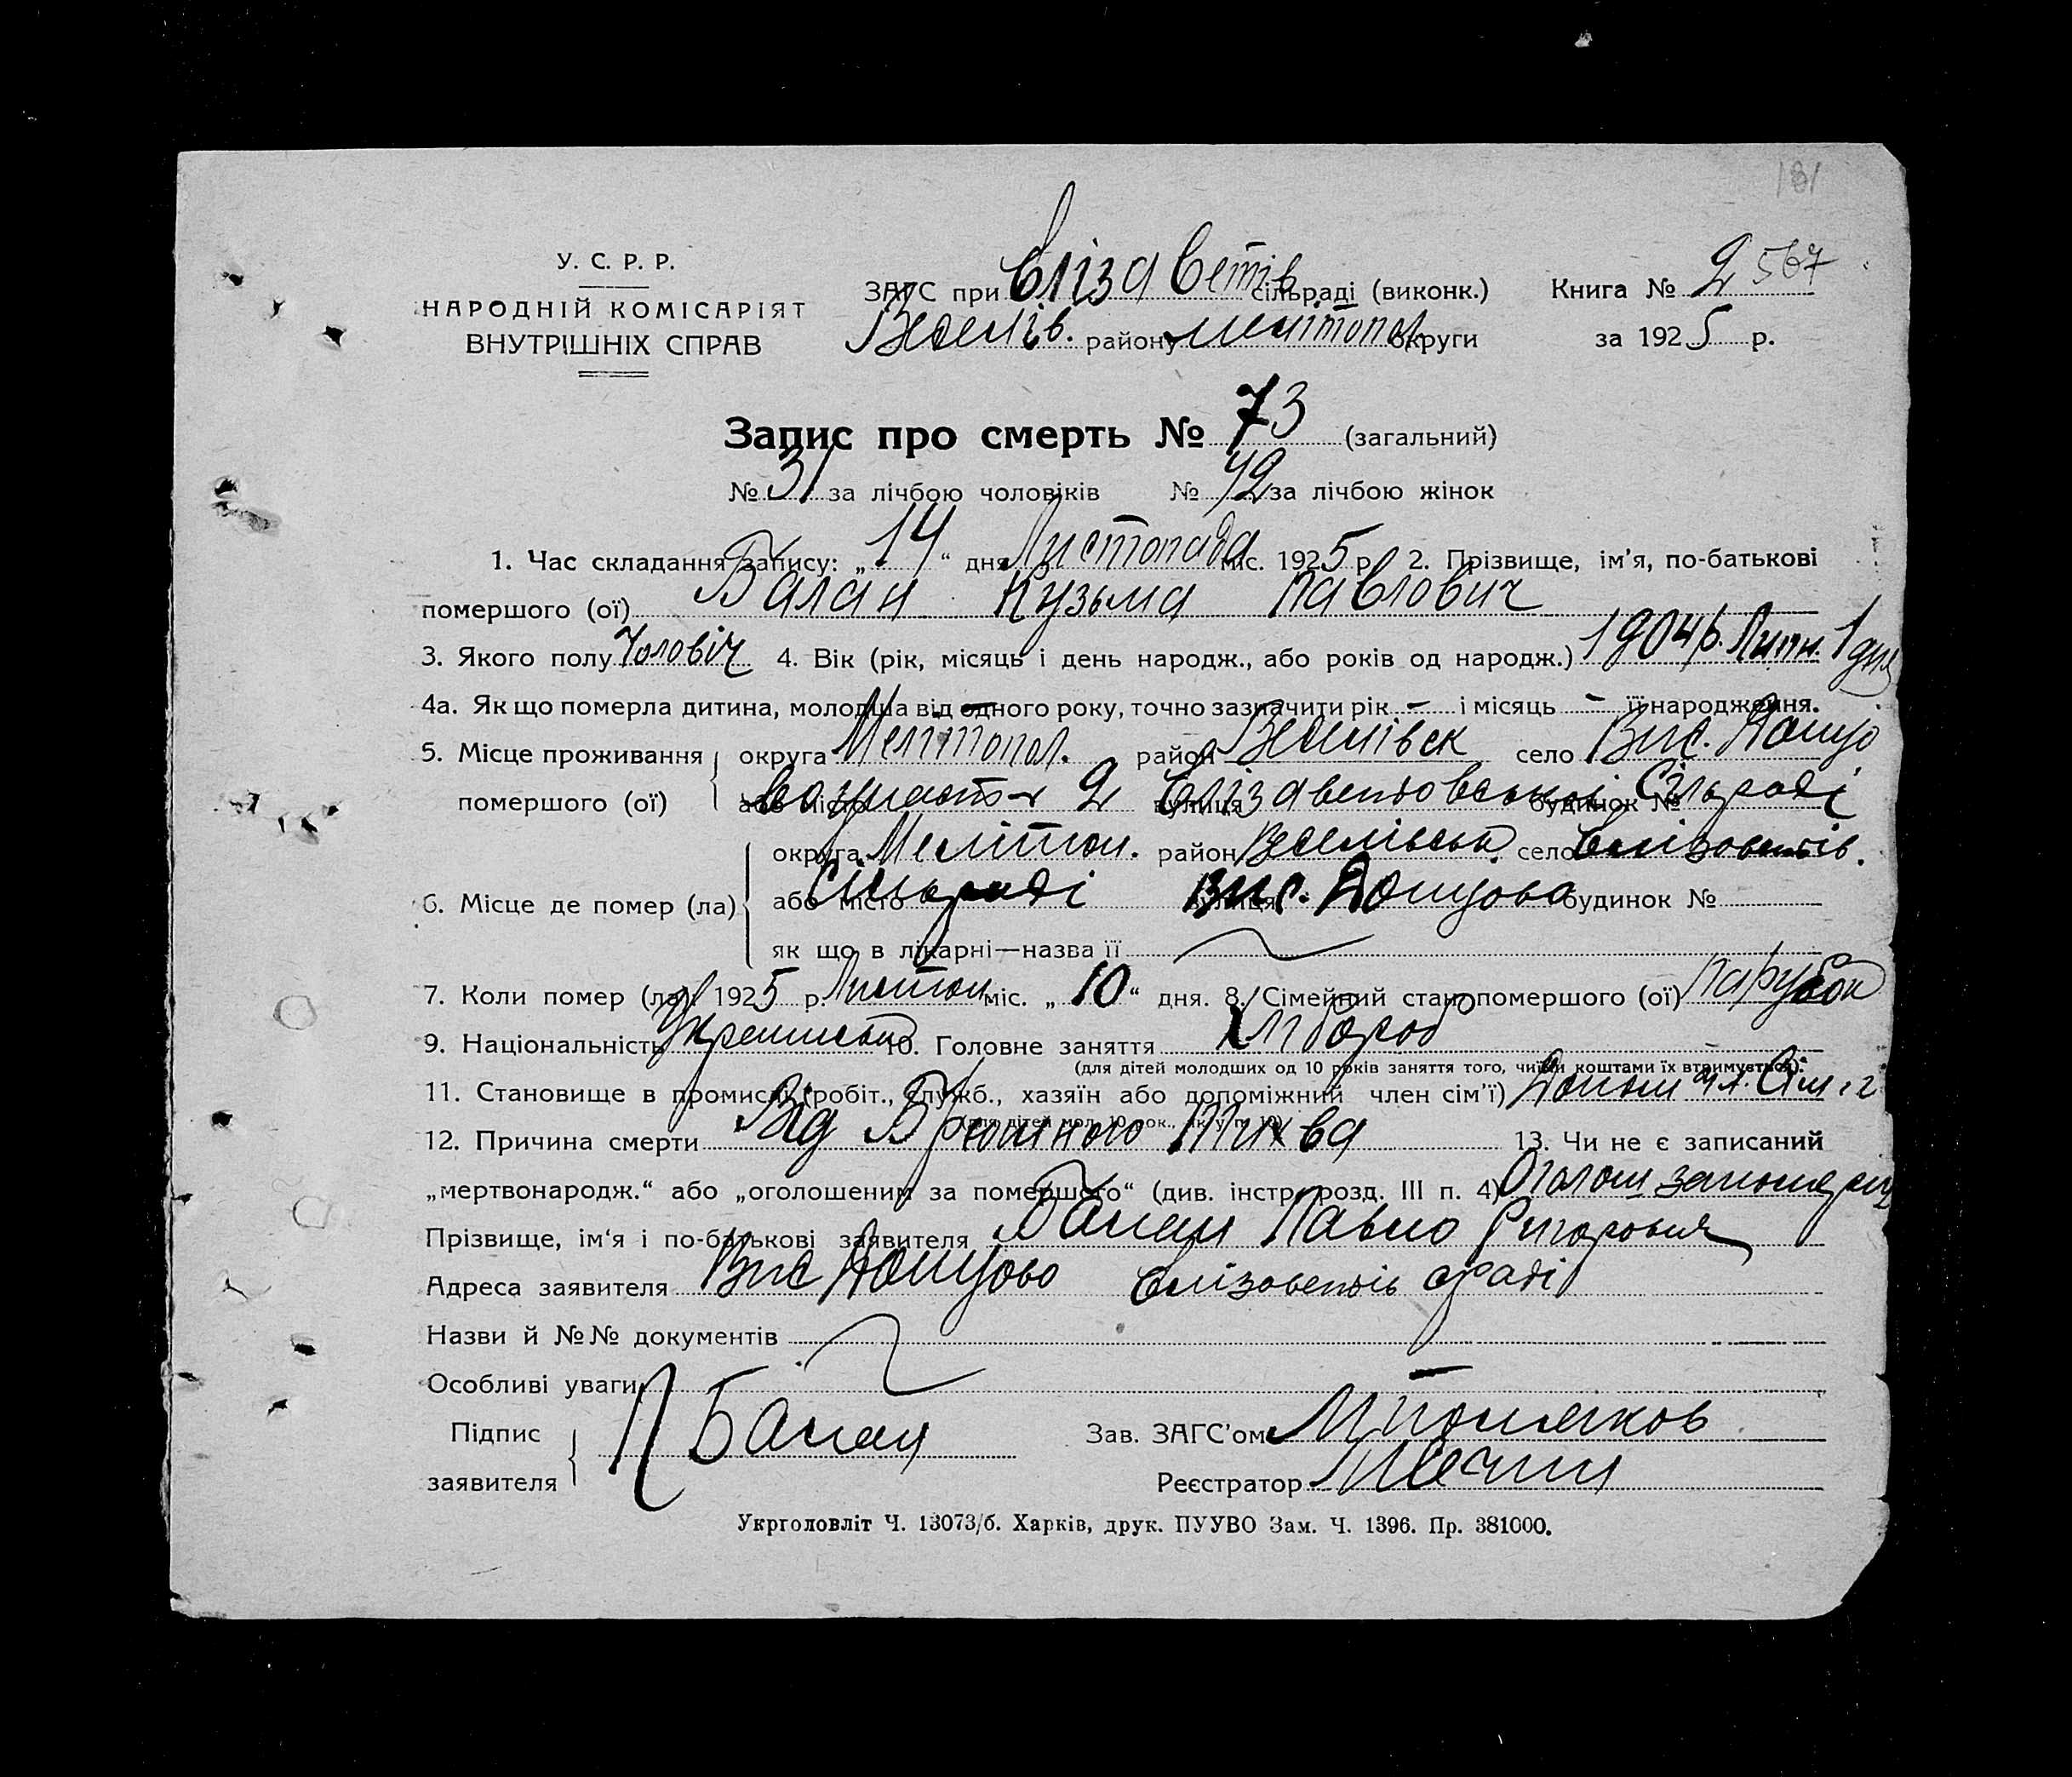 181
У. С. Р. Р.
НАРОДНІЙ КОМІСАРІЯТ
ВНУТРІШНІХ СПРАВ
ЗАГС при Єлізаветів сільраді (виконк.)
Веселів. району Мелітопол округи
Книга № 2 567
за 1925 р.
Запис про смерть № 73 (загальний)
№ 31 за лічбою чоловіків № 42 за лічбою жінок
1. Час складання запису: „14“ дня Листопада міс. 1925 р. 2. Прізвище, ім’я, по-батькові
помершого (ої) Балан Кузьма Павлович
3. Якого полу Чоловіч 4. Вік (рік, місяць і день народж., або років од народж.) 1904 р. Липн. 1 дня
4а. Як що померла дитина, молодша від одного року, точно зазначити рік – і місяць – її народження.
5. Місце проживання округа Мелітопол. район Веселівськ село Вис.
помершого (ої) або місто 2 вулиця Єлізаветовської будинок № Сільраді
округа Мелітоп. район Веселівськ. село Єлізоветів.
6. Місце де помер (ла) або місто Сільраді вулиця Вис. будинок №
як що в лікарні—назва її
7. Коли помер (ла) 1925 р. Листоп міс. „10“ дня. 8. Сімейний стан помершого (ої) Парубок
9. Національність 10. Головне заняття Хлібороб
(для дітей молодших од 10 років заняття того, чиїми коштами їх втримується).
11. Становище в промислі (робіт., служб., хазяїн або допоміжний член сім’ї) Допом чл. сім'ї
(для дітей мол. 10 рок., як у п. 10)
12. Причина смерти Від Брюшного Тихва 13. Чи не є записаний
„мертвонародж.“ або „оголошеним за помершого“ (див. інстр. розд. III п. 4) Оголош
Прізвище, ім‘я і по-батькові заявителя Балан Павло Григорович
Адреса заявителя Вис Єлізоветів сраді
Назви й №№ документів
Особливі уваги
Підпис
заявителя П Балан
Зав. ЗАГС’ом
Реєстратор
Укрголовліт Ч. 13073/б. Харків, друк. ПУУВО Зам. Ч. 1396. Пр. 381000.